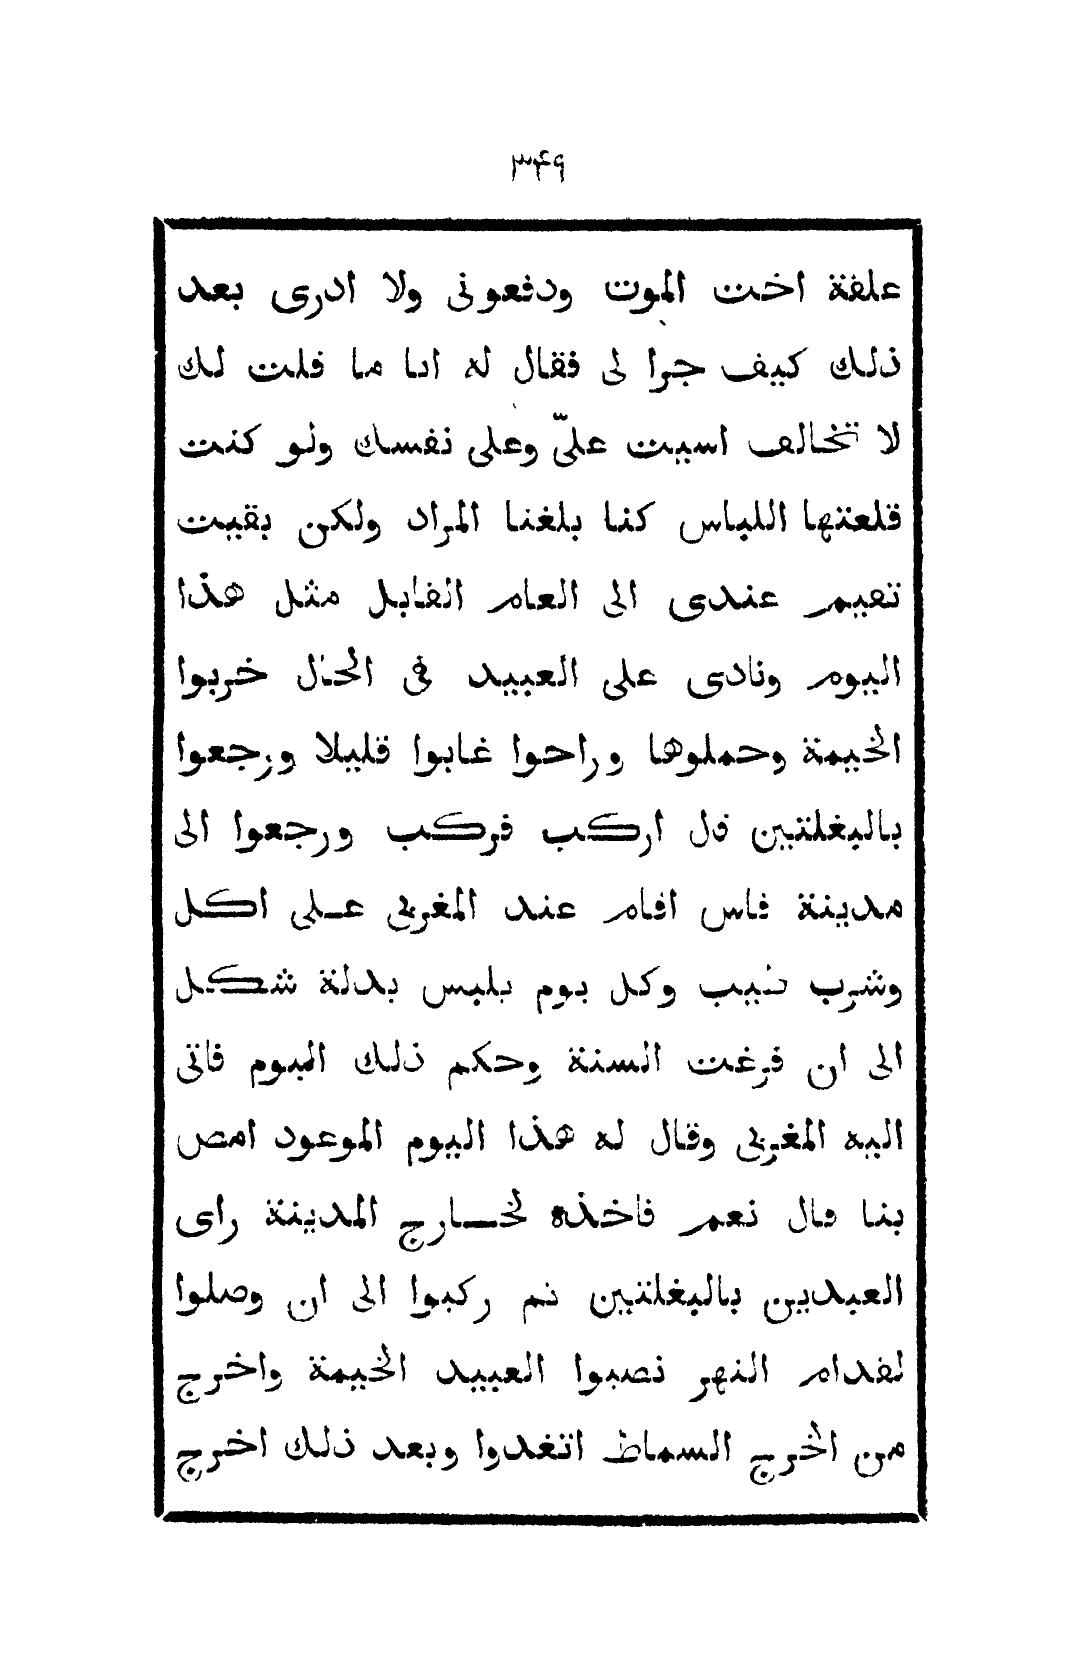 ٣٤٩
علقة اخت الموت ودفعونى ولا ادرى بعد
ذلك كيف جرا لى فقال له انا ما قلت لك
لا تخالف اسيت علىّ وعلى نفسك ولو كنت
قلعتها اللباس كنا بلغنا المراد ولكن بقيت
تقيم عندى الى العام القابل مثل هذا
اليوم ونادى على العبيد فى الحال خربوا
الخيمة وحملوها وراحوا غابوا قليلا ورجعوا
بالبغلتين قال اركب فركب ورجعوا الى
مدينة فاس اقام عند المغربى على اكل
وشرب طيب وكل يوم يلبس بدلة شكل
الى ان فرغت السنة وحكم ذلك اليوم فاتى
اليه المغربى وقال له هذا اليوم الموعود امض
بنا قال نعم فاخذه لخارج المدينة راى
العبدين بالبغلتين ثم ركبوا الى ان وصلوا
لقدام النهر نصبوا العبيد الخيمة واخرج
من الخرج السماط اتغدوا وبعد ذلك اخرج